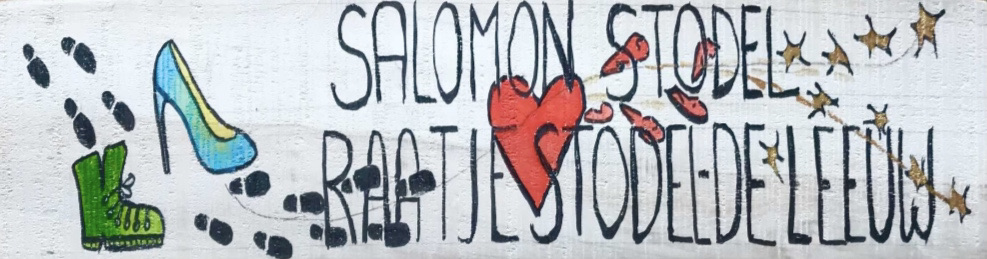 SALOMON STODEL
RAATJE STODEL-DE LEEUW